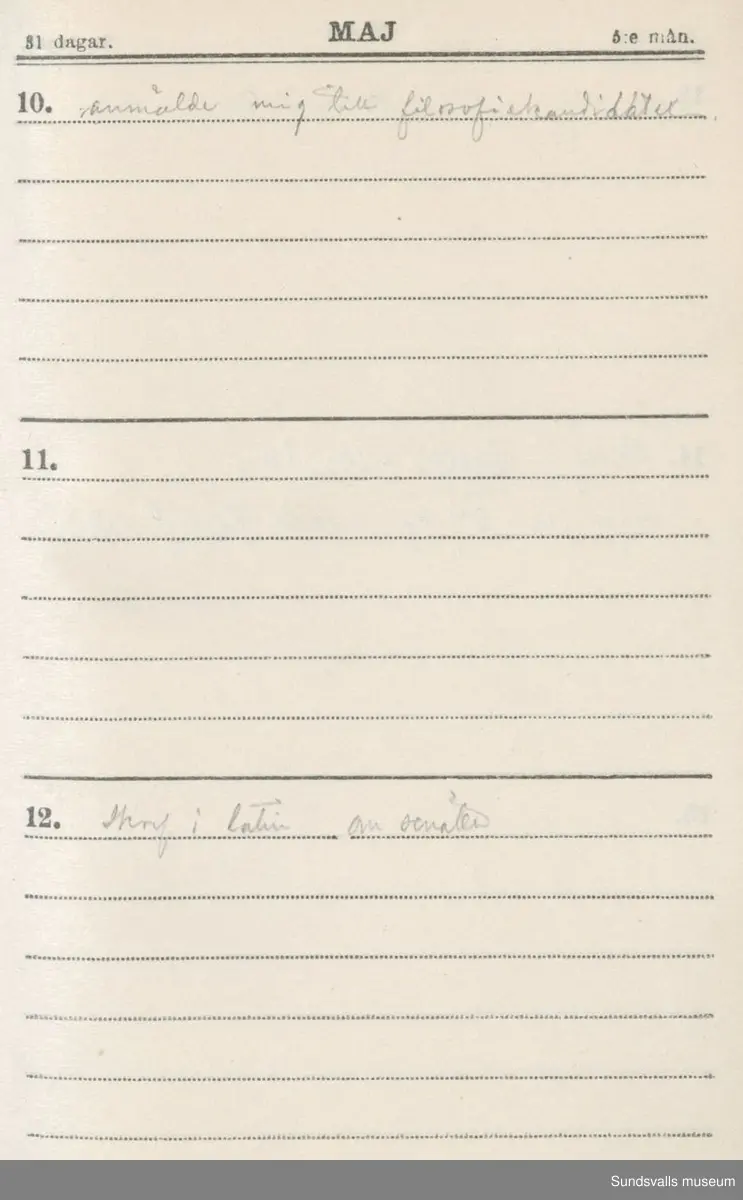 31 dagar. MAJ 5:e mån.
10. anmälde mig till filosofiekandidaten
11.
12. Skref i latin om senaten
Sundsvalls museum